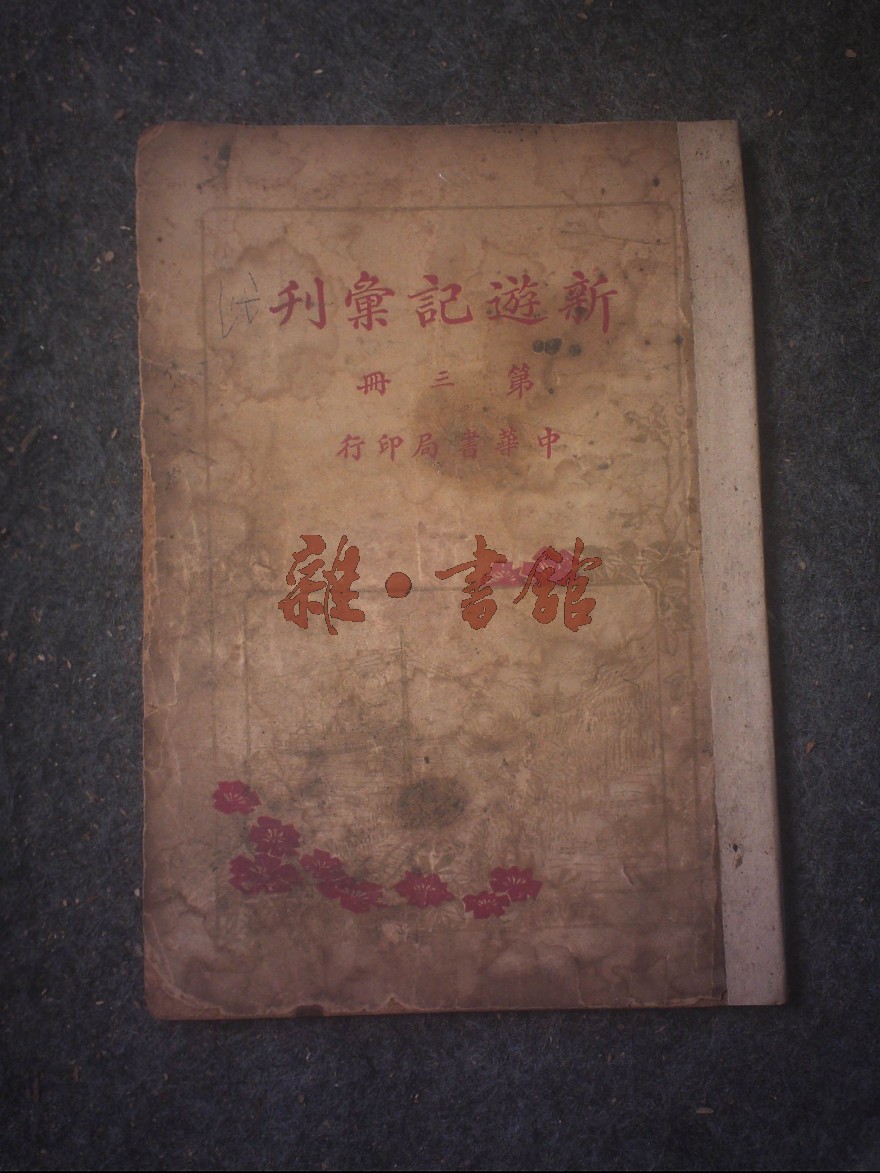 新遊記彙刊
第三冊
中華書局印行
雜·書館